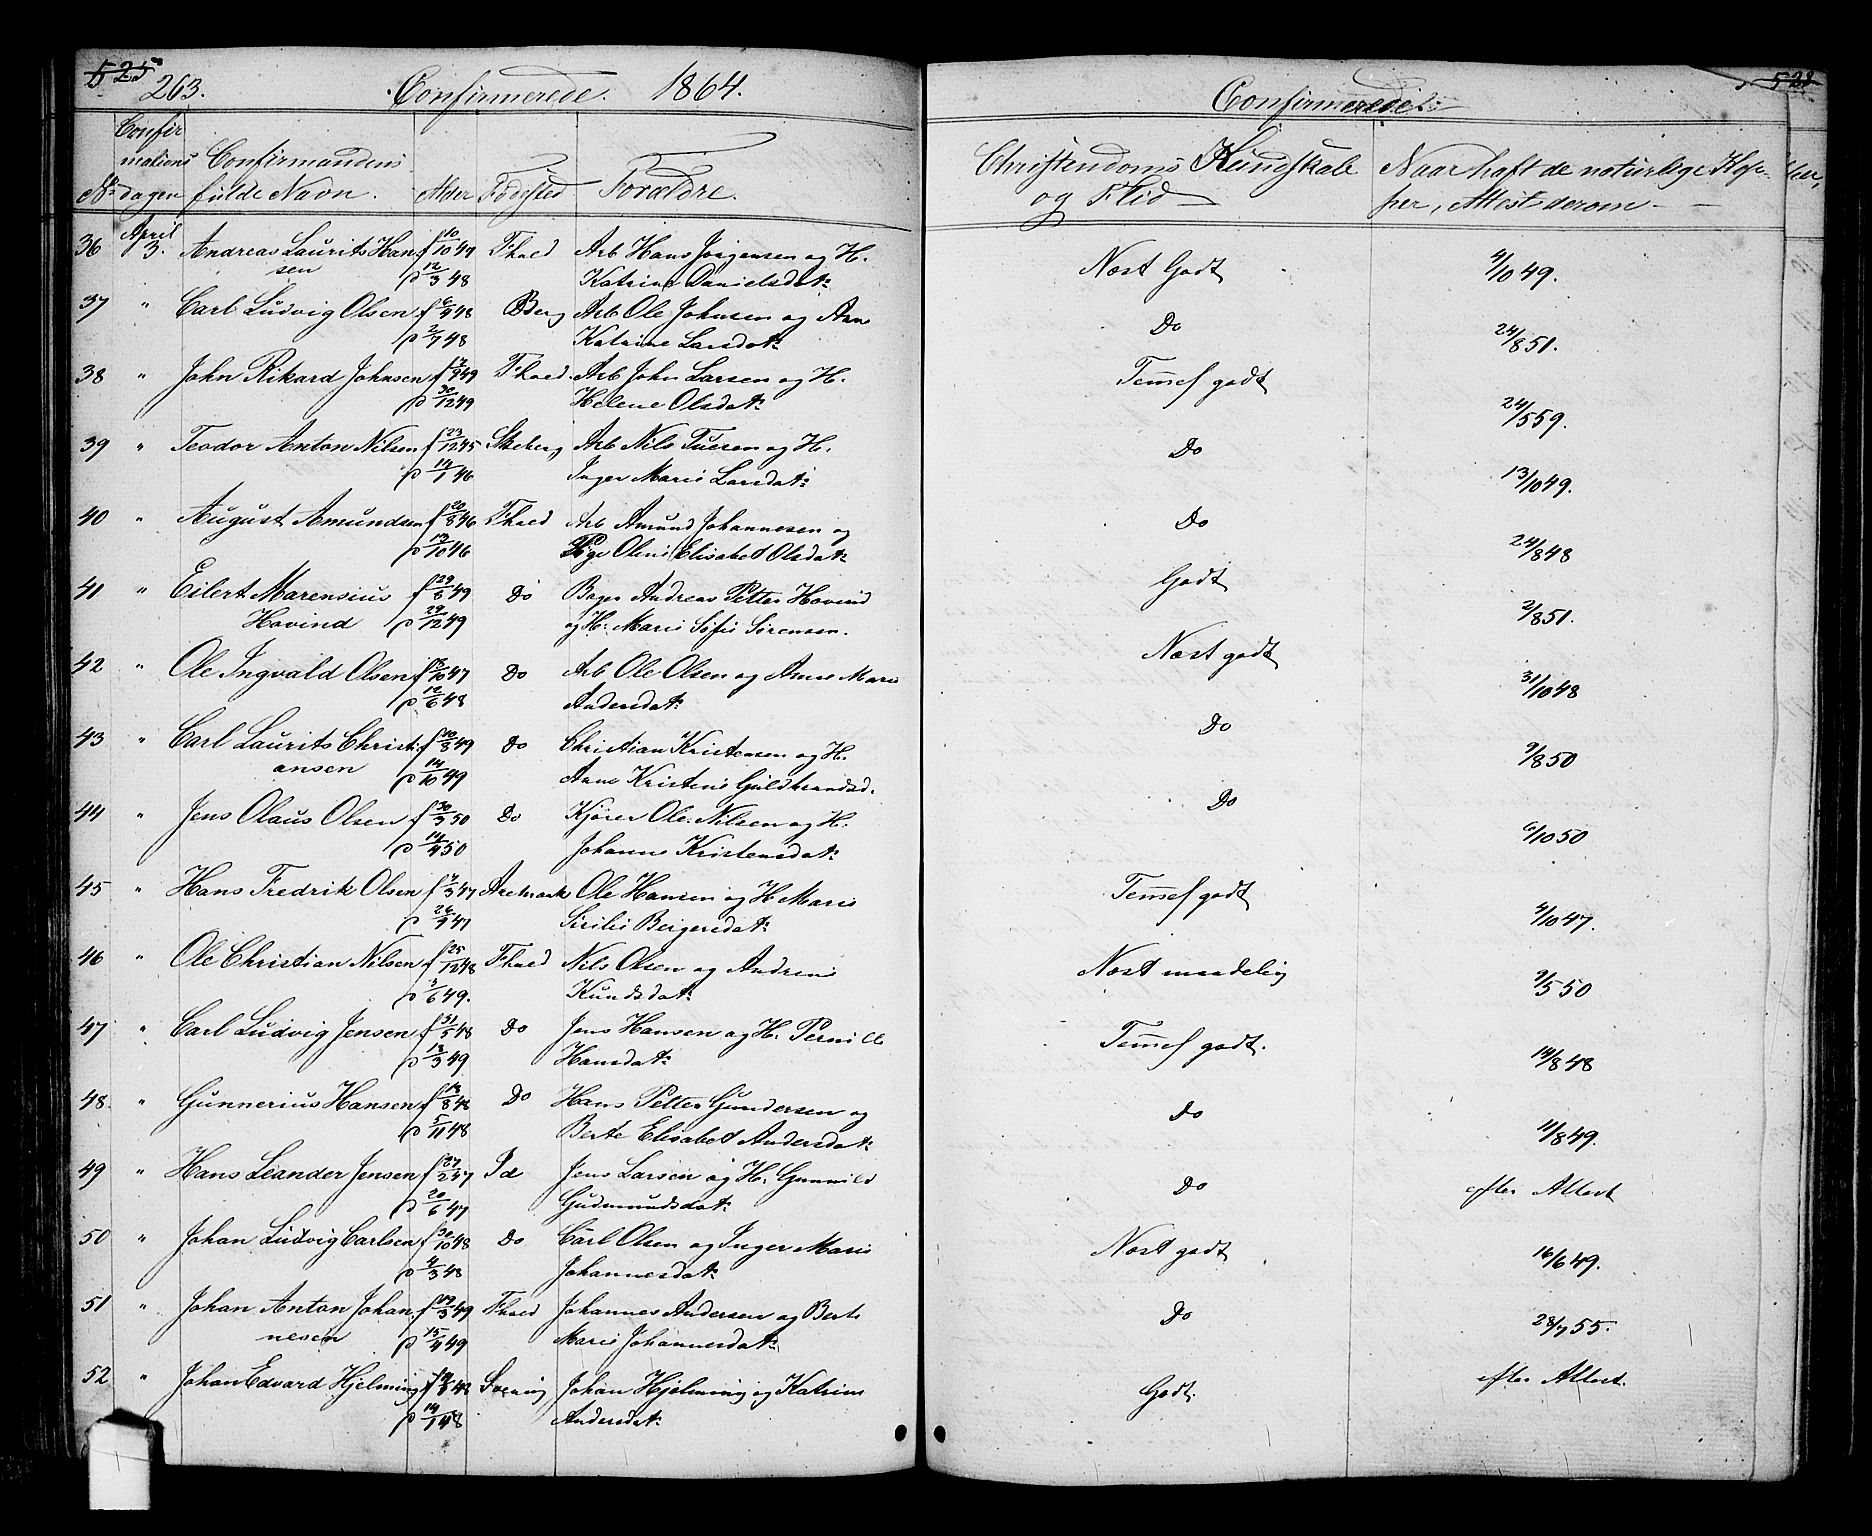 525 263. Confirmerede. 1864.
Confirmations dagen
No Confirmandens fulde Navn. Alder Fødested Forældre.
36 April 3. Andreas Laurits Han- f 10/10 49 Fhald Arb Hans Jørgensen og H.
sen p 12/3 48 Katrine Danielsdatr
37 " Carl Ludvig Olsen f 6/4 48 Berg Arb Ole Johnsen og Ane
p 2/7 48 Katrine Larsdatr
38 " John Rikard Johnsen 49 Fhald. Arb John Larsen og H.
p 30/12 49 Helene Olsdatr
39 " Teodor Anton Nilsen f 23/12 45 Skeberg Arb Nils Tuesen og H.
p 14/1 46 Inger Marie Larsdatr
40 " August Amundsen f 20/8 46 Fhald Arb Amund Johannesen og
p 13/10 46 Pige Oline Elisabet Olsdatr
41 " Eilert Marensius f 29/6 49 Do Bager Andreas Petter Hovind
Hovind p 29/12 49 og H. Marie Sofie Sørensen.
42 " Ole Ingvald Olsen 47 Do Arb Ole Olsen og Anne Marie
p 12/6 48 Andersdatr
43 " Carl Laurits Christi- f 10/8 49 Do Christian Kristensen og H.
ansen p 14/10 49 Anne Kristine Guldbrandsd.
44 " Jens Olaus Olsen f 30/3 50 Do Kjører Ole Nilsen og H.
p 14/4 50 Johanne Kristensdatr
45 " Hans Fredrik Olsen f 4/3 47 Aremark Ole Hansen og H Marie
p 26/4 47 Sicilie Beigersdatr
46 " Ole Christian Nilsen f 25/12 48 Fhald Nils Olsen og Andrine
p 3/6 49. Knudsdatr
47 " Carl Ludvig Jensen f 31/5 48 Do Jens Hansen og H. Pernille
p 13/3 49 Hansdatr
48. " Gunnerius Hansen f 13/8 48 Do Hans Petter Gundersen og
p 5/11 48 Berte Elisabet Andersdatr
49 " Hans Leander Jensen f 27/2 47 Id Jens Larsen og H. Gunnild
p 20/6 47 Gudmundsdatr
50 " Johan Ludvig Carlsen f 30/10 48 Do Carl Olsen og Inger Marie
p 4/3 48 Johannesdatr
51 " Johan Anton Johan- f 19/3 49 Fhald Johannes Andersen og Berte
nesen p 15/4 49 Marie Johannesdatr
52 " Johan Edvard Hjelming Johan Hjelming og Katrine
p 14/1 48 Andersdatr
Confirmerede. 528
Christendoms Kundskab og Flid
Naar haft de naturlige Kop-
per, Attest derom
Næst Godt 4/10 49.
Do 24/8 51.
Temmel godt 24/5 59.
Do 13/10 49.
Do 24/8 48
Godt 2/8 51.
Næst godt 31/10 48
Do 9/8 50
Do 6/10 50
Temmel godt 4/10 47.
Næst maadelig 9/5 50
Temmel godt. 14/8 48
Do 11/8 49.
Do efter Attest
Næst godt 16/6 49.
Do 28/7 55.
Godt. efter Attest.